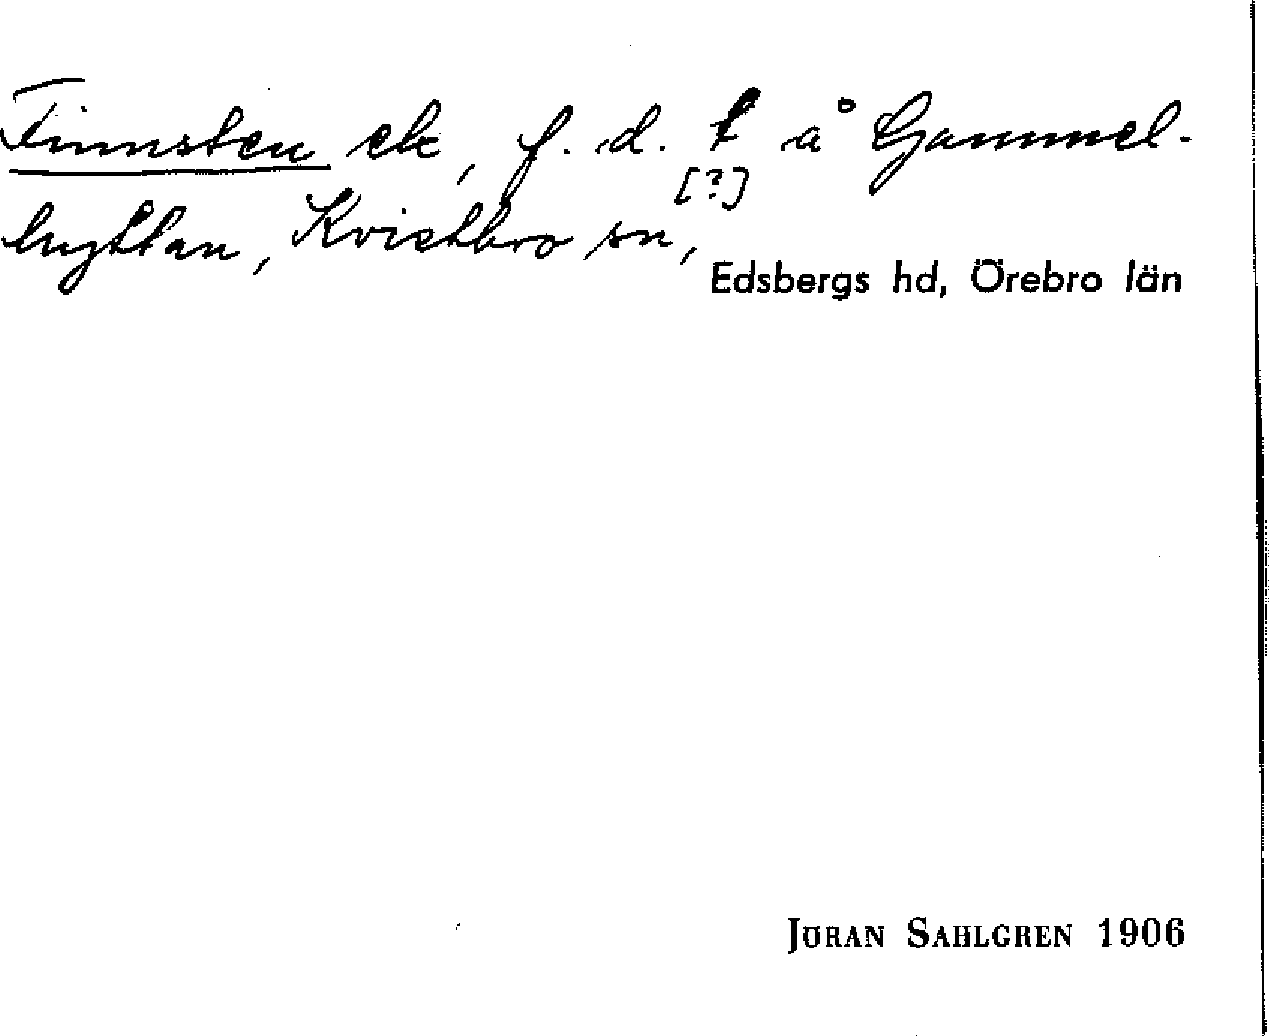 Finnsten ek, f. d. t å Gammel-
[?]
hyttan, Kvistbro sn,
Edsbergs hd, Örebro län
JÖRAN SAHLGREN 1906